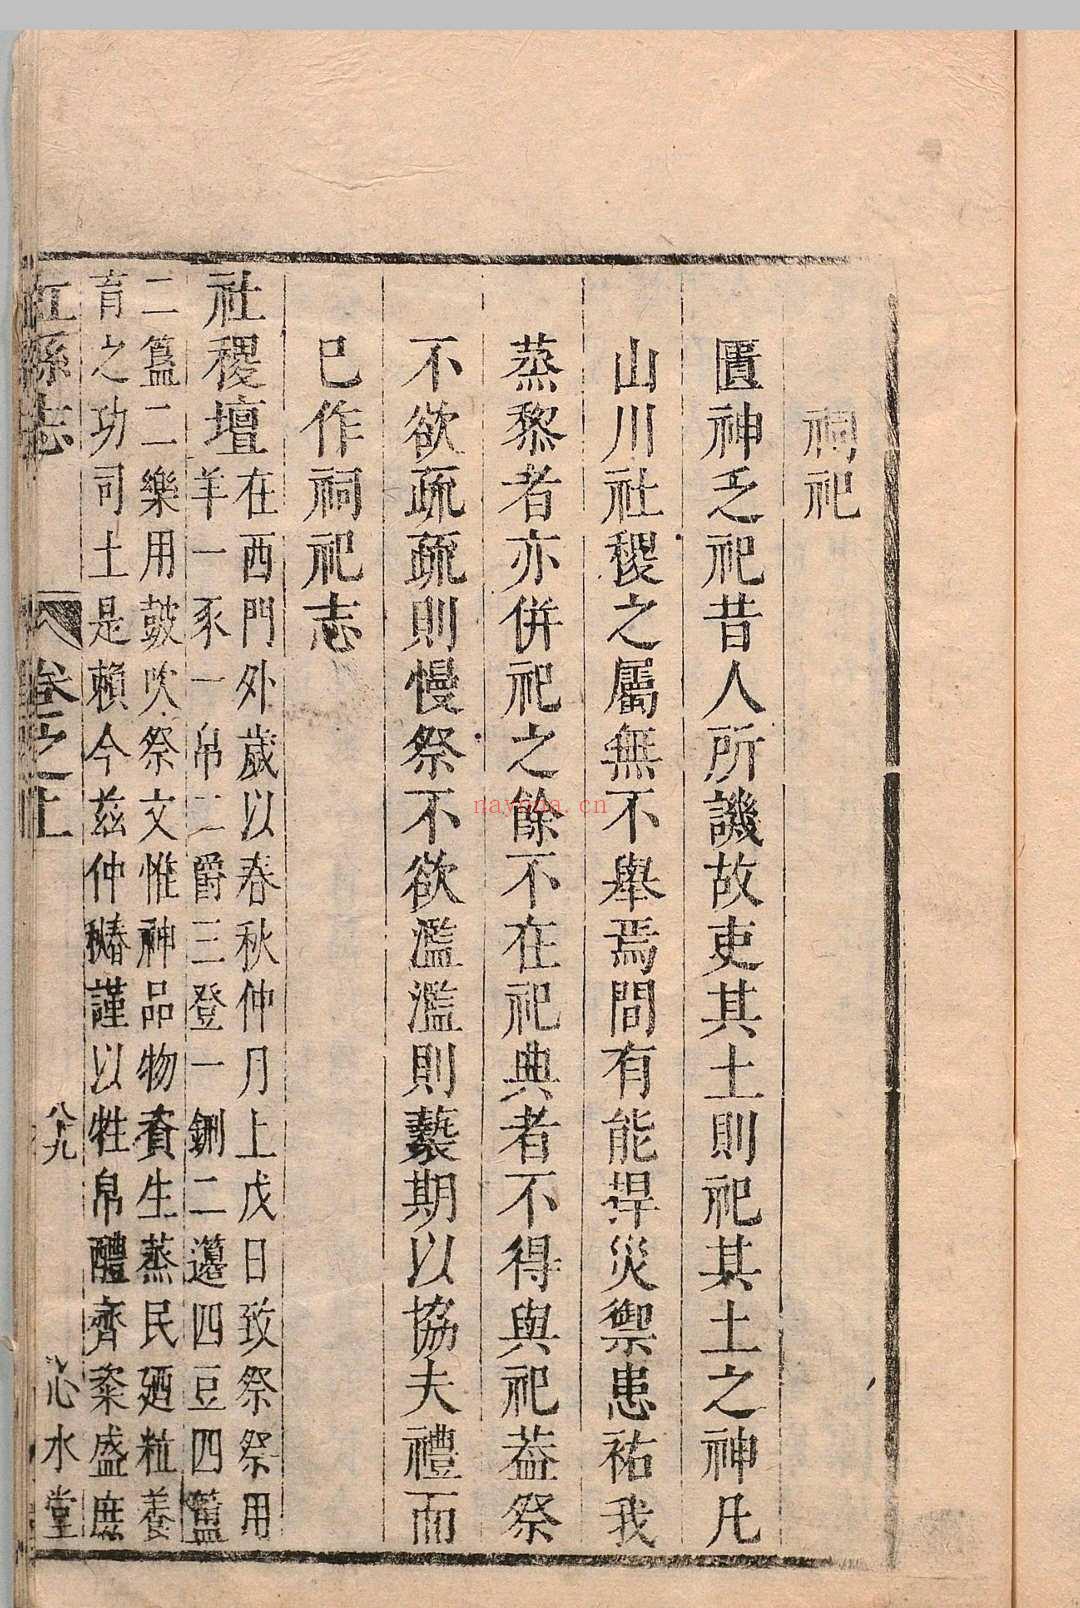 祠祀
匱神乏祀昔人所譏故吏其土則祀其土之神凡
山川社稷之屬無不舉焉間有能捍災禦患祐我
蒸黎者亦併祀之餘不在祀典者不得與祀葢祭
不欲疏疏則慢祭不欲濫濫則褻期以協夫禮而
已作祠祀志
社稷壇
在西門外歲以春秋仲月上戊日致祭祭用
羊一豕一帛二爵三登一鉶二籩四豆四簠
二簋二樂用鼓吹祭文惟神品物資生蒸民廼粒養
育之功司土是賴今茲仲謹以牲帛醴齊粢盛庶
縣志
卷之上
八十九
沁水堂
nayona.cn